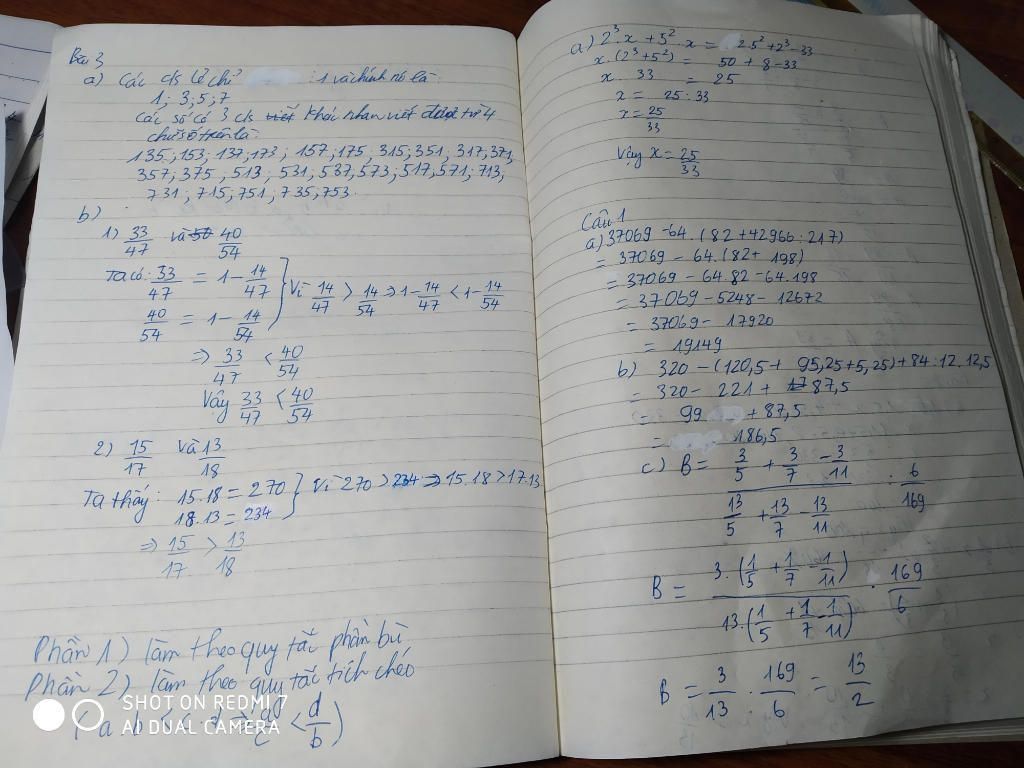 Bài 3
a) Các c/s lẻ chỉ : 1 và chính nó là:
1; 3; 5; 7
Các số có 3 c/s viết khác nhau viết được từ 4
chữ số trên là:
135; 153; 137; 173; 157, 175; 315; 351; 317; 371;
357; 375, 513; 531; 537; 573; 517; 571; 713;
731; 715; 751; 735, 753.
b)
1) 33/47 và 50 40/54
Ta có: 33/47 = 1 - 14/47
40/54 = 1 - 14/54
} Vì 14/47 > 14/54 => 1 - 14/47 < 1 - 14/54
=> 33/47 < 40/54
Vậy 33/47 < 40/54
2) 15/17 và 13/18
Ta thấy: 15.18 = 270
18.13 = 234
} Vì 270 > 234 => 15.18 > 17.13
=> 15/17 > 13/18
Phần 1) làm theo quy tắc phần bù
Phần 2) làm theo quy tắc tích chéo
(a b < c < d/b)
SHOT ON REDMI 7
AI DUAL CAMERA
a) 2³.x + 5².x = 25² + 2³ - 33
x.(2³ + 5²) = 50 + 8 - 33
x. 33 = 25
x = 25 : 33
x = 25/33
Vậy x = 25/33
Câu 1
a) 37069 - 64.(82 + 42966 : 217)
= 37069 - 64.(82 + 198)
= 37069 - 64.82 - 64.198
= 37069 - 5248 - 12672
= 37069 - 17920
= 19149
b) 320 - (120,5 + 95,25 + 5,25) + 84 : 12.12,5
= 320 - 221 + 87,5
= 99 + 87,5
= 186,5
c) B = (3/5 + 3/7 - 3/11)/(13/5 + 13/7 - 13/11) : 6/169
B = (3.(1/5 + 1/7 - 1/11))/(13.(1/5 + 1/7 - 1/11)) . 169/6
B = 3/13 . 169/6 = 13/2